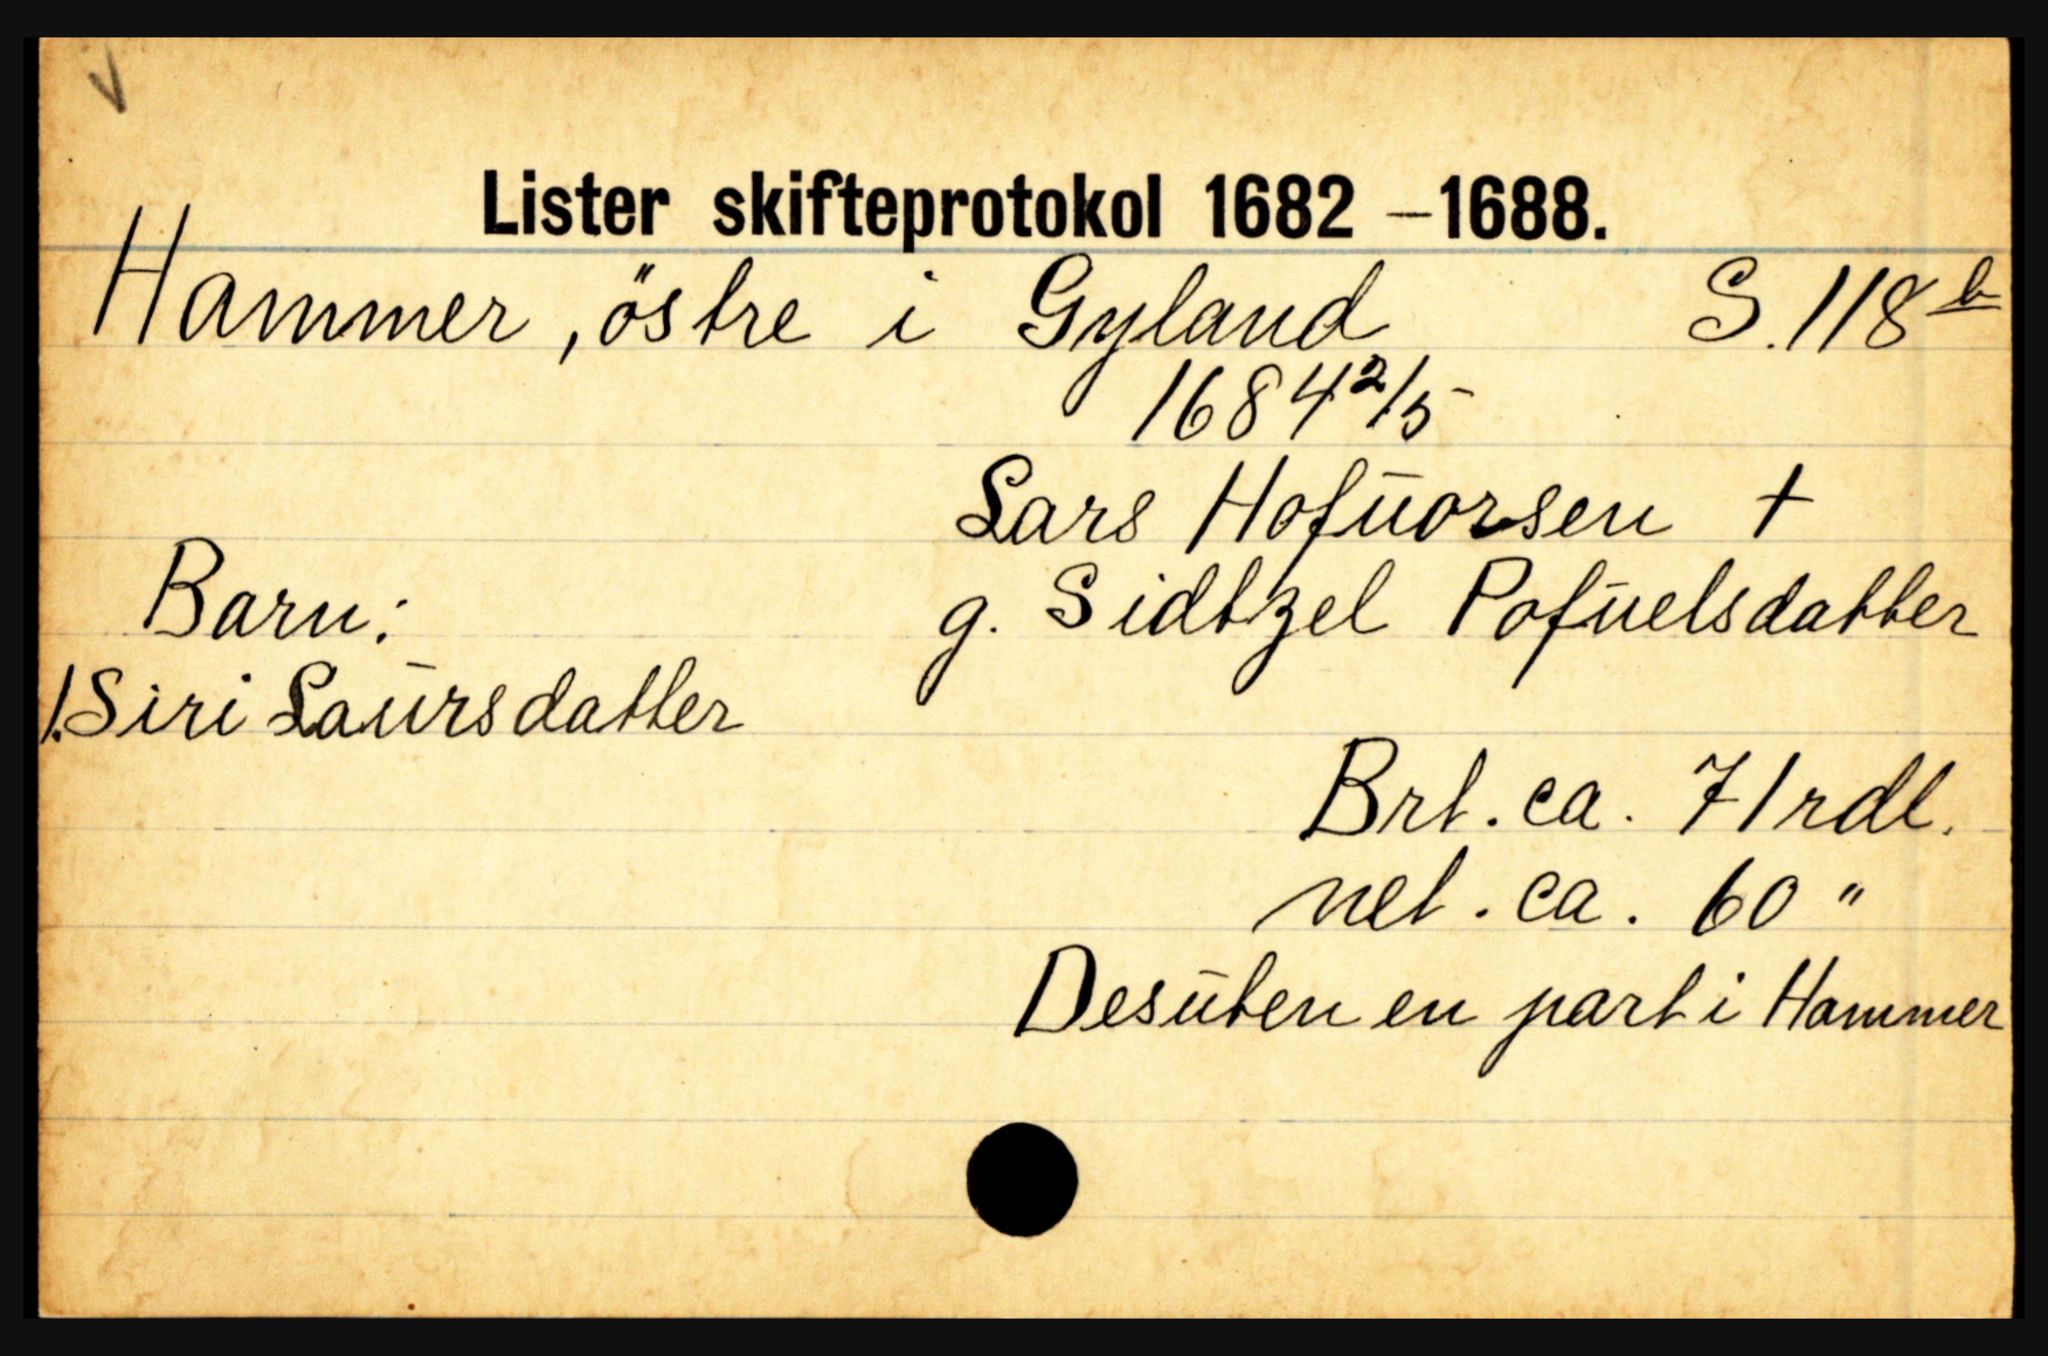 Lister skifteprotokol 1682 – 1688.
Hammer, östre i Gyland S. 118 b
1684 2/5
Lars Hofuorsen †
g. Sidtzel Pofuelsdatter
Barn:
1. Siri Laursdatter
Brt. ca. 71 rdl.
net. ca. 60 "
Desuten en part i Hammer